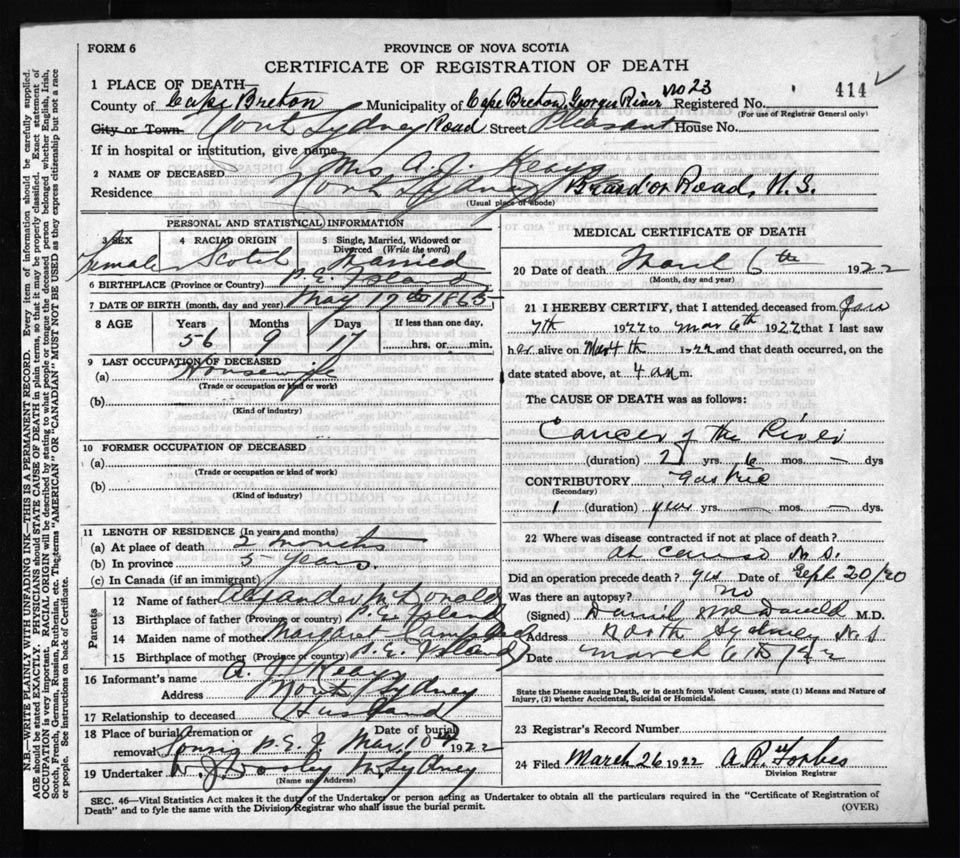 FORM 6
PROVINCE OF NOVA SCOTIA
CERTIFICATE OF REGISTRATION OF DEATH
1 PLACE OF DEATH—
County of Cape Breton Municipality of Cape Breton, Georges River No 23 Registered No. 414
(For use of Registrar General only)
City or Town North Sydney Road Street Pleasant House No.
If in hospital or institution, give name
2 NAME OF DECEASED Mrs A. J.
Residence North Sydney Road, N.S.
(Usual place of abode)
PERSONAL AND STATISTICAL INFORMATION
3 SEX Female
4 RACIAL ORIGIN Scotch
5 Single, Married, Widowed or Divorced (Write the word) Married
6 BIRTHPLACE (Province or Country) P.E. Island
7 DATE OF BIRTH (month, day and year) May 19th 1865
8 AGE Years Months Days If less than one day,
56 9 17 hrs. or min.
9 LAST OCCUPATION OF DECEASED
(a) Housewife
(Trade or occupation or kind of work)
(b)
(Kind of industry)
10 FORMER OCCUPATION OF DECEASED
(a)
(Trade or occupation or kind of work)
(b)
(Kind of industry)
11 LENGTH OF RESIDENCE (In years and months)
(a) At place of death 2 months
(b) In province 5 years.
(c) In Canada (if an immigrant)
Parents
12 Name of father Alexander McDonald
13 Birthplace of father (Province or Country) P.E. Island
14 Maiden name of mother Margaret Campbell
15 Birthplace of mother (Province or country) P.E. Island
16 Informant's name A. J.
Address North Sydney
17 Relationship to deceased Husband
18 Place of burial, cremation or removal Souris P.E.I. Date of burial Mar. 10th 1922
19 Undertaker N. Sydney
(Name and Address)
MEDICAL CERTIFICATE OF DEATH
20 Date of death March 6th 1922
(Month, day and year)
21 I HEREBY CERTIFY, that I attended deceased from Jan
7th 1922 to Mar 6th 1922 that I last saw
her alive on Mar 4th 1922 and that death occurred, on the
date stated above, at 4 am m.
The CAUSE OF DEATH was as follows:
Cancer of the Liver
(duration) 2 yrs. 6 mos. — dys
CONTRIBUTORY Gastric
(Secondary)
1 (duration) year yrs. — mos. — dys.
22 Where was disease contracted if not at place of death?
at Canso N.S.
Did an operation precede death? yes Date of Sept 20/20
Was there an autopsy? No
(Signed) Daniel McDonald M.D.
Address North Sydney N.S
Date March 6th 1922
State the Disease causing Death, or in death from Violent Causes, state (1) Means and Nature of
Injury, (2) whether Accidental, Suicidal or Homicidal.
23 Registrar's Record Number
24 Filed March 26 1922 A. R. Forbes
Division Registrar
SEC. 46—Vital Statistics Act makes it the duty of the Undertaker or person acting as Undertaker to obtain all the particulars required in the "Certificate of Registration of
Death" and to fyle the same with the Division Registrar who shall issue the burial permit.
(OVER)
N.B.—WRITE PLAINLY WITH UNFADING INK—THIS IS A PERMANENT RECORD. Every item of information should be carefully supplied.
AGE should be stated EXACTLY. PHYSICIANS should STATE CAUSE OF DEATH in plain terms, so that it may be properly classified. Exact statement of
OCCUPATION is very important. RACIAL ORIGIN will be described by stating to what people or tongue the deceased person belonged, whether English, Irish,
Scotch, French, German, Russian, Ruthenian, etc. The terms "AMERICAN" OR "CANADIAN" MUST NOT BE USED as they express citizenship but not a race
or people. See instructions on back of Certificate.